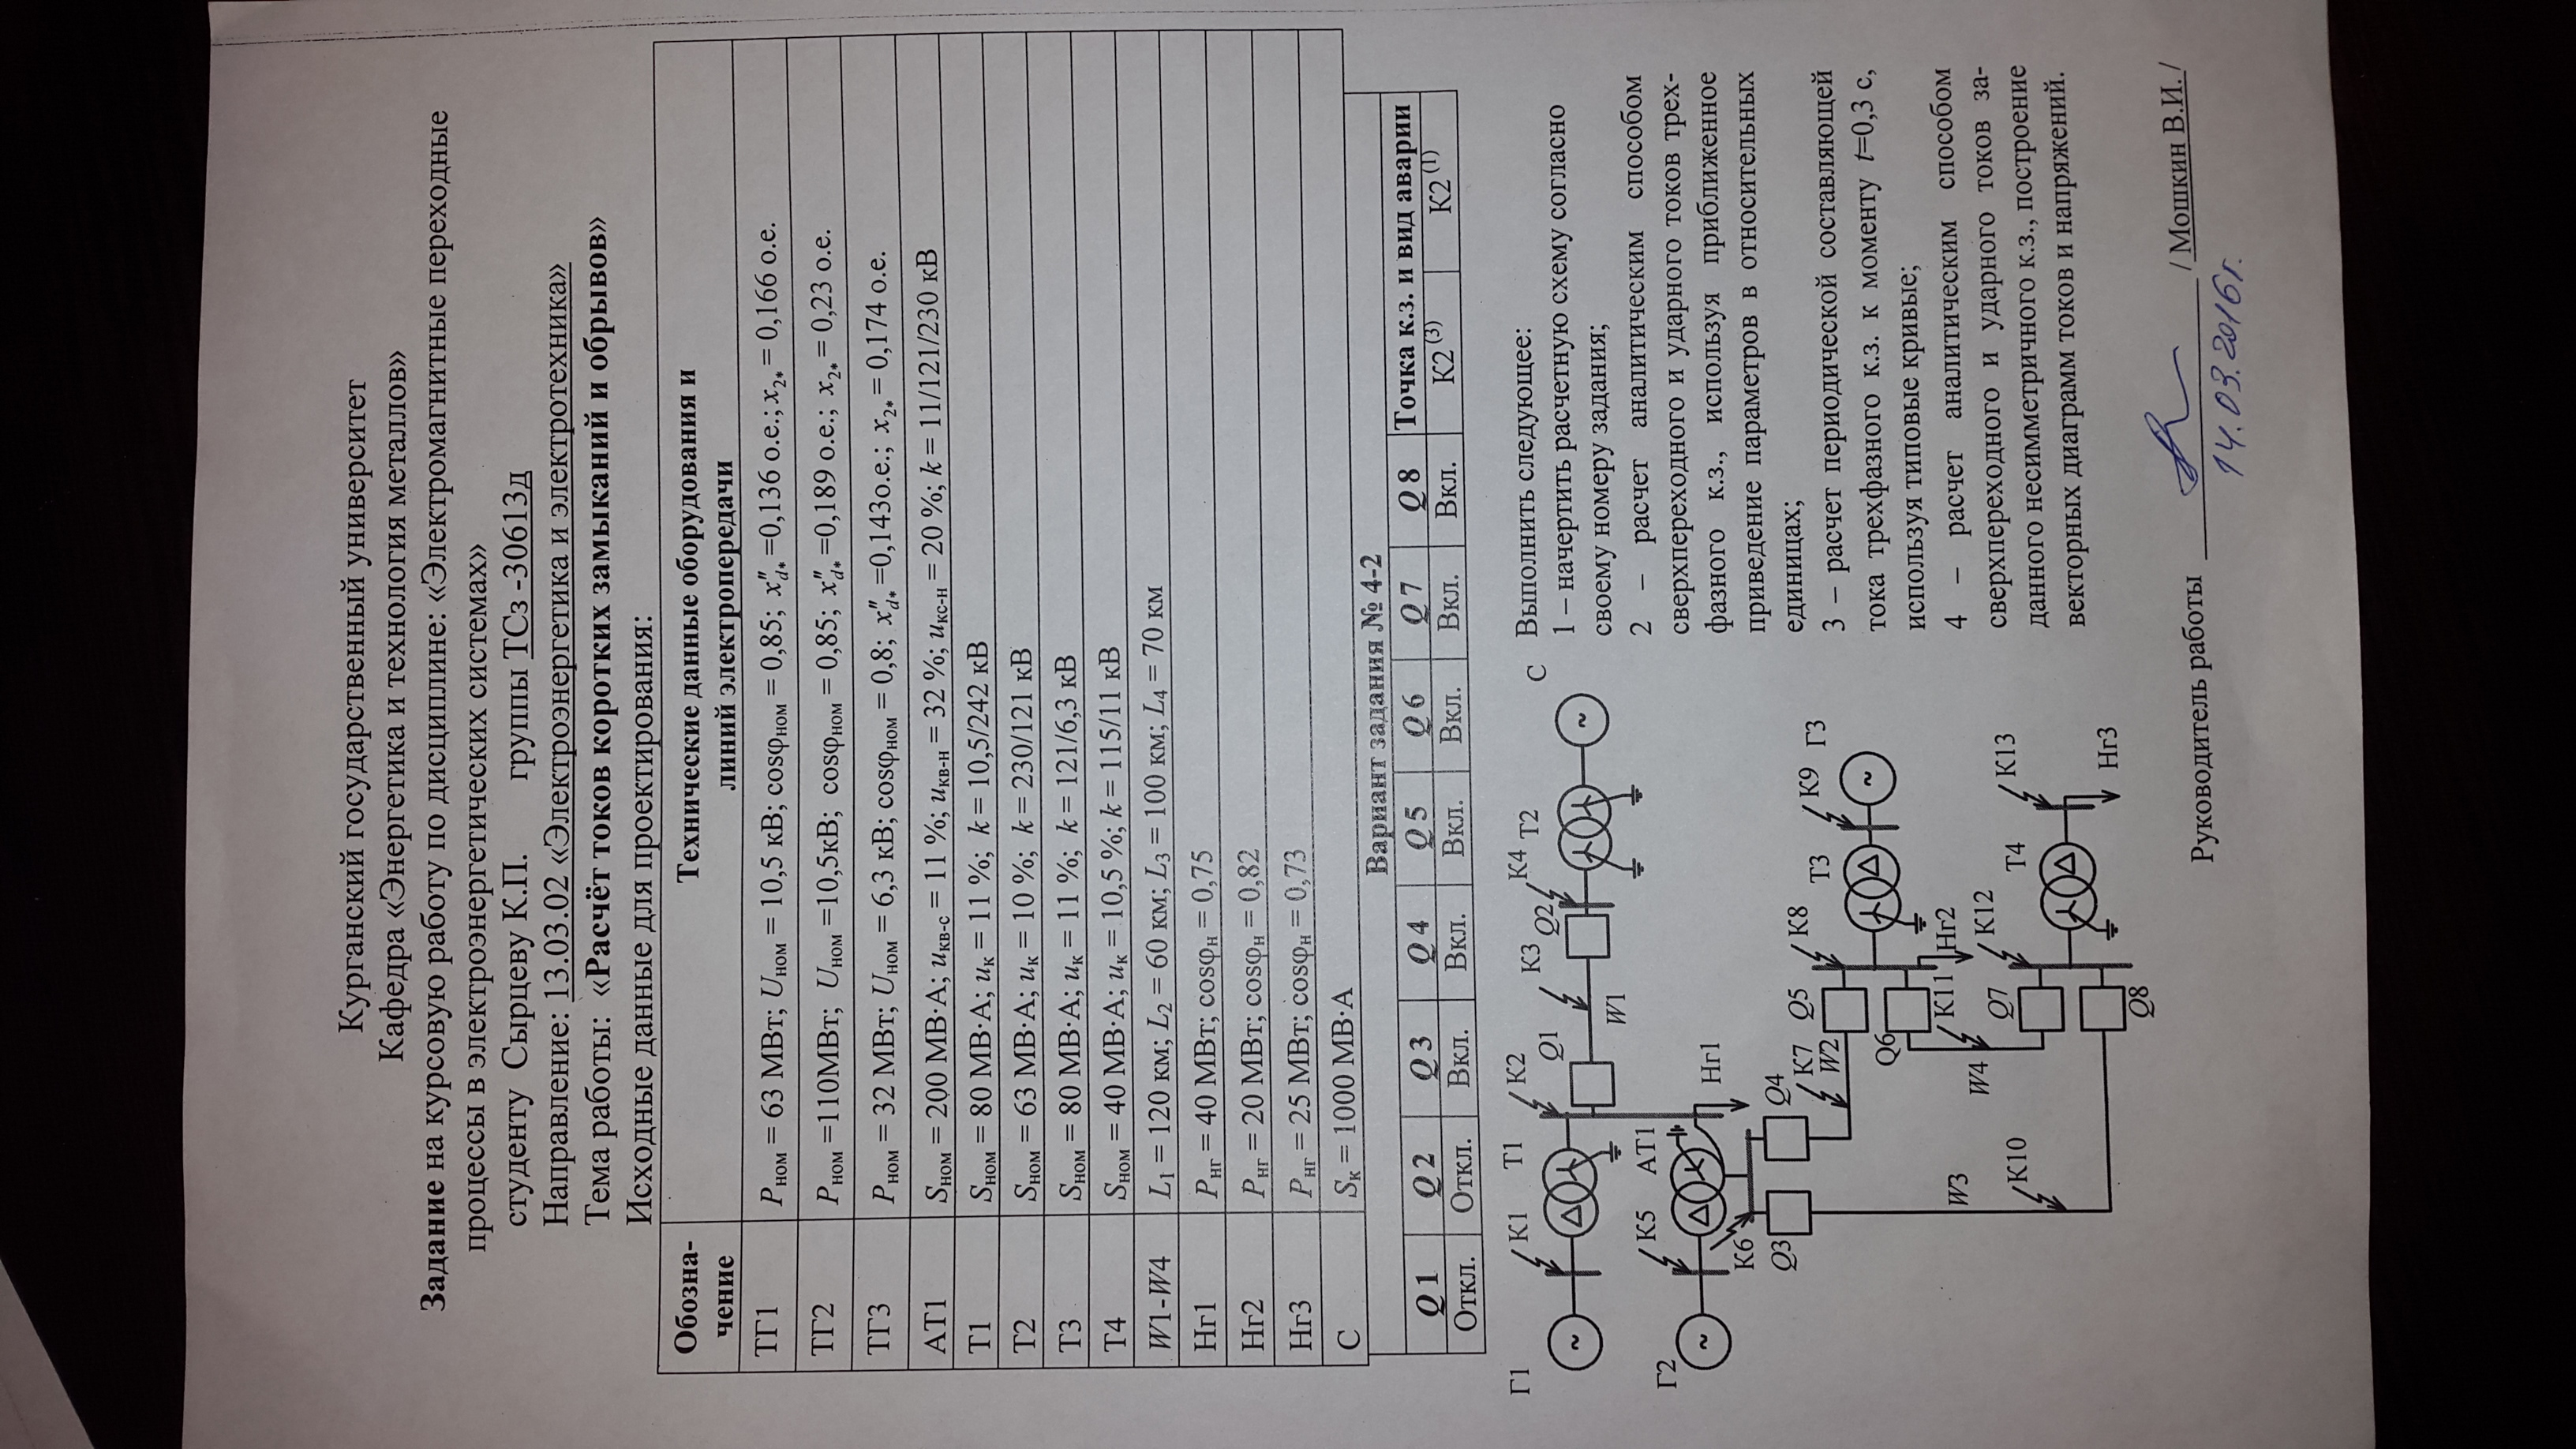 Курганский государственный университет
Кафедра «Энергетика и технология металлов»
Задание на курсовую работу по дисциплине: «Электромагнитные переходные
процессы в электроэнергетических системах»
студенту Сырцеву К.П. группы ТСз -30613д
Направление: 13.03.02 «Электроэнергетика и электротехника»
Тема работы: «Расчёт токов коротких замыканий и обрывов»
Исходные данные для проектирования:
Обозна-
чение
Технические данные оборудования и
линий электропередачи
ТГ1 Pном = 63 МВт; Uном = 10,5 кВ; cosφном = 0,85; x″d* =0,136 о.е.; x2* = 0,166 о.е.
ТГ2 Pном =110МВт; Uном =10,5кВ; cosφном = 0,85; x″d* =0,189 о.е.; x2* = 0,23 о.е.
ТГ3 Pном = 32 МВт; Uном = 6,3 кВ; cosφном = 0,8; x″d* =0,143о.е.; x2* = 0,174 о.е.
АТ1 Sном = 200 МВ·А; uкв-с = 11 %; uкв-н = 32 %; uкс-н = 20 %; k = 11/121/230 кВ
Т1 Sном = 80 МВ·А; uк = 11 %; k = 10,5/242 кВ
Т2 Sном = 63 МВ·А; uк = 10 %; k = 230/121 кВ
Т3 Sном = 80 МВ·А; uк = 11 %; k = 121/6,3 кВ
Т4 Sном = 40 МВ·А; uк = 10,5 %; k = 115/11 кВ
W1-W4 L1 = 120 км; L2 = 60 км; L3 = 100 км; L4 = 70 км
Нг1 Pнг = 40 МВт; cosφн = 0,75
Нг2 Pнг = 20 МВт; cosφн = 0,82
Нг3 Pнг = 25 МВт; cosφн = 0,73
С Sк = 1000 МВ·А
Вариант задания № 4-2
Q1 Q2 Q3 Q4 Q5 Q6 Q7 Q8 Точка к.з. и вид аварии
Откл. Откл. Вкл. Вкл. Вкл. Вкл. Вкл. Вкл. К2(3) К2(1)
Г1
К1
Т1
К2
Q1
К3
Q2
К4
Т2
С
W1
Г2
К5
АТ1
Нг1
К6
Q3
Q4
К7
W2
Q5
К8
Т3
К9
Г3
Q6
К11
Нг2
W3
W4
Q7
К12
Т4
К13
К10
Q8
Нг3
Выполнить следующее:
1 – начертить расчетную схему согласно
своему номеру задания;
2 – расчет аналитическим способом
сверхпереходного и ударного токов трех-
фазного к.з., используя приближенное
приведение параметров в относительных
единицах;
3 – расчет периодической составляющей
тока трехфазного к.з. к моменту t=0,3 с,
используя типовые кривые;
4 – расчет аналитическим способом
сверхпереходного и ударного токов за-
данного несимметричного к.з., построение
векторных диаграмм токов и напряжений.
Руководитель работы / Мошкин В.И. /
14.03.2016г.